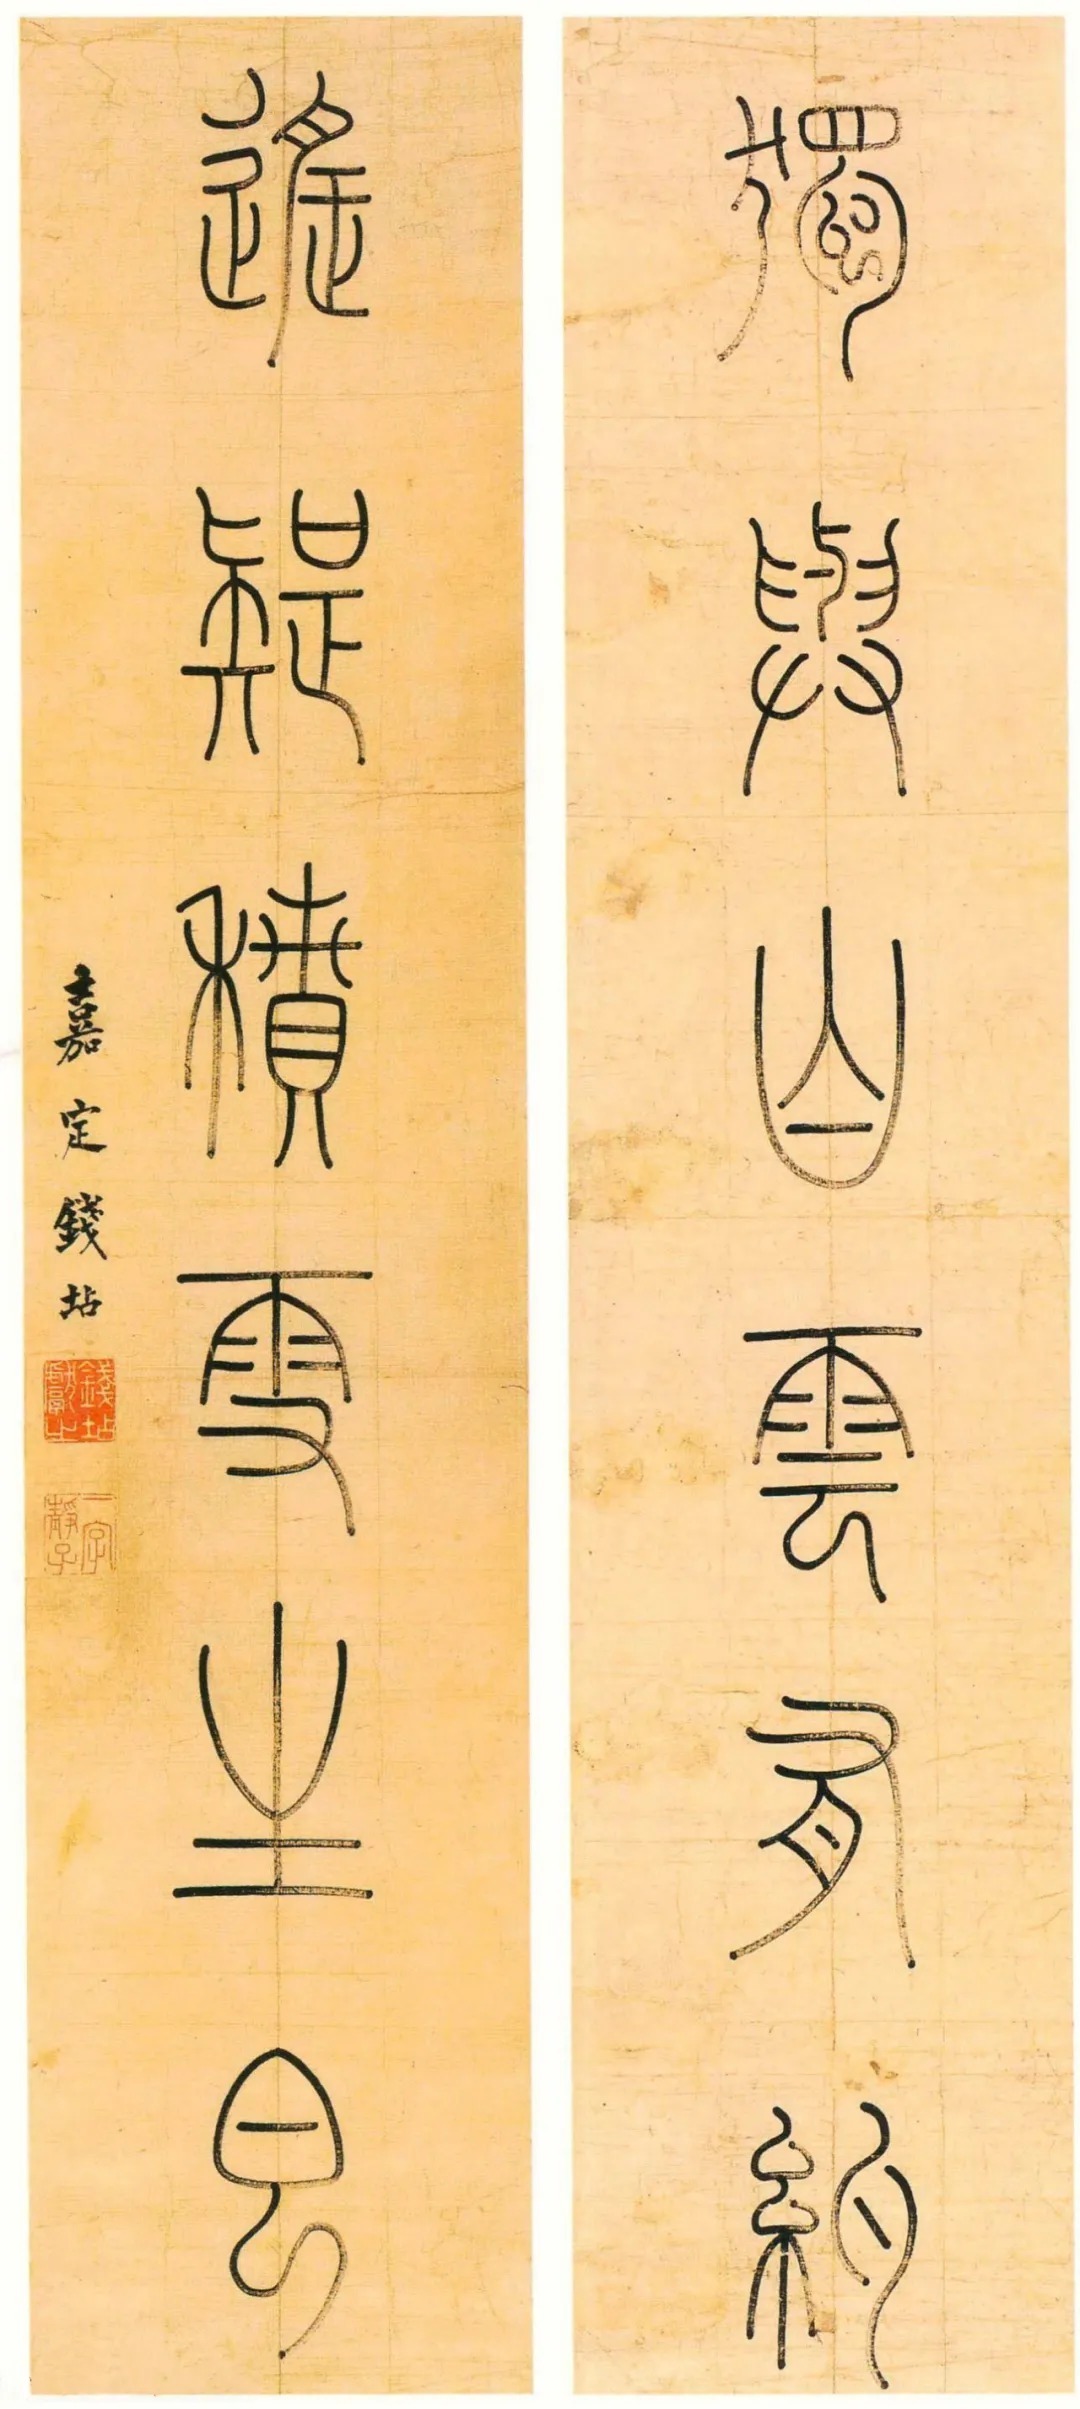 獨與白雲有約
遙疑積雪生
嘉定錢坫
錢坫獻之